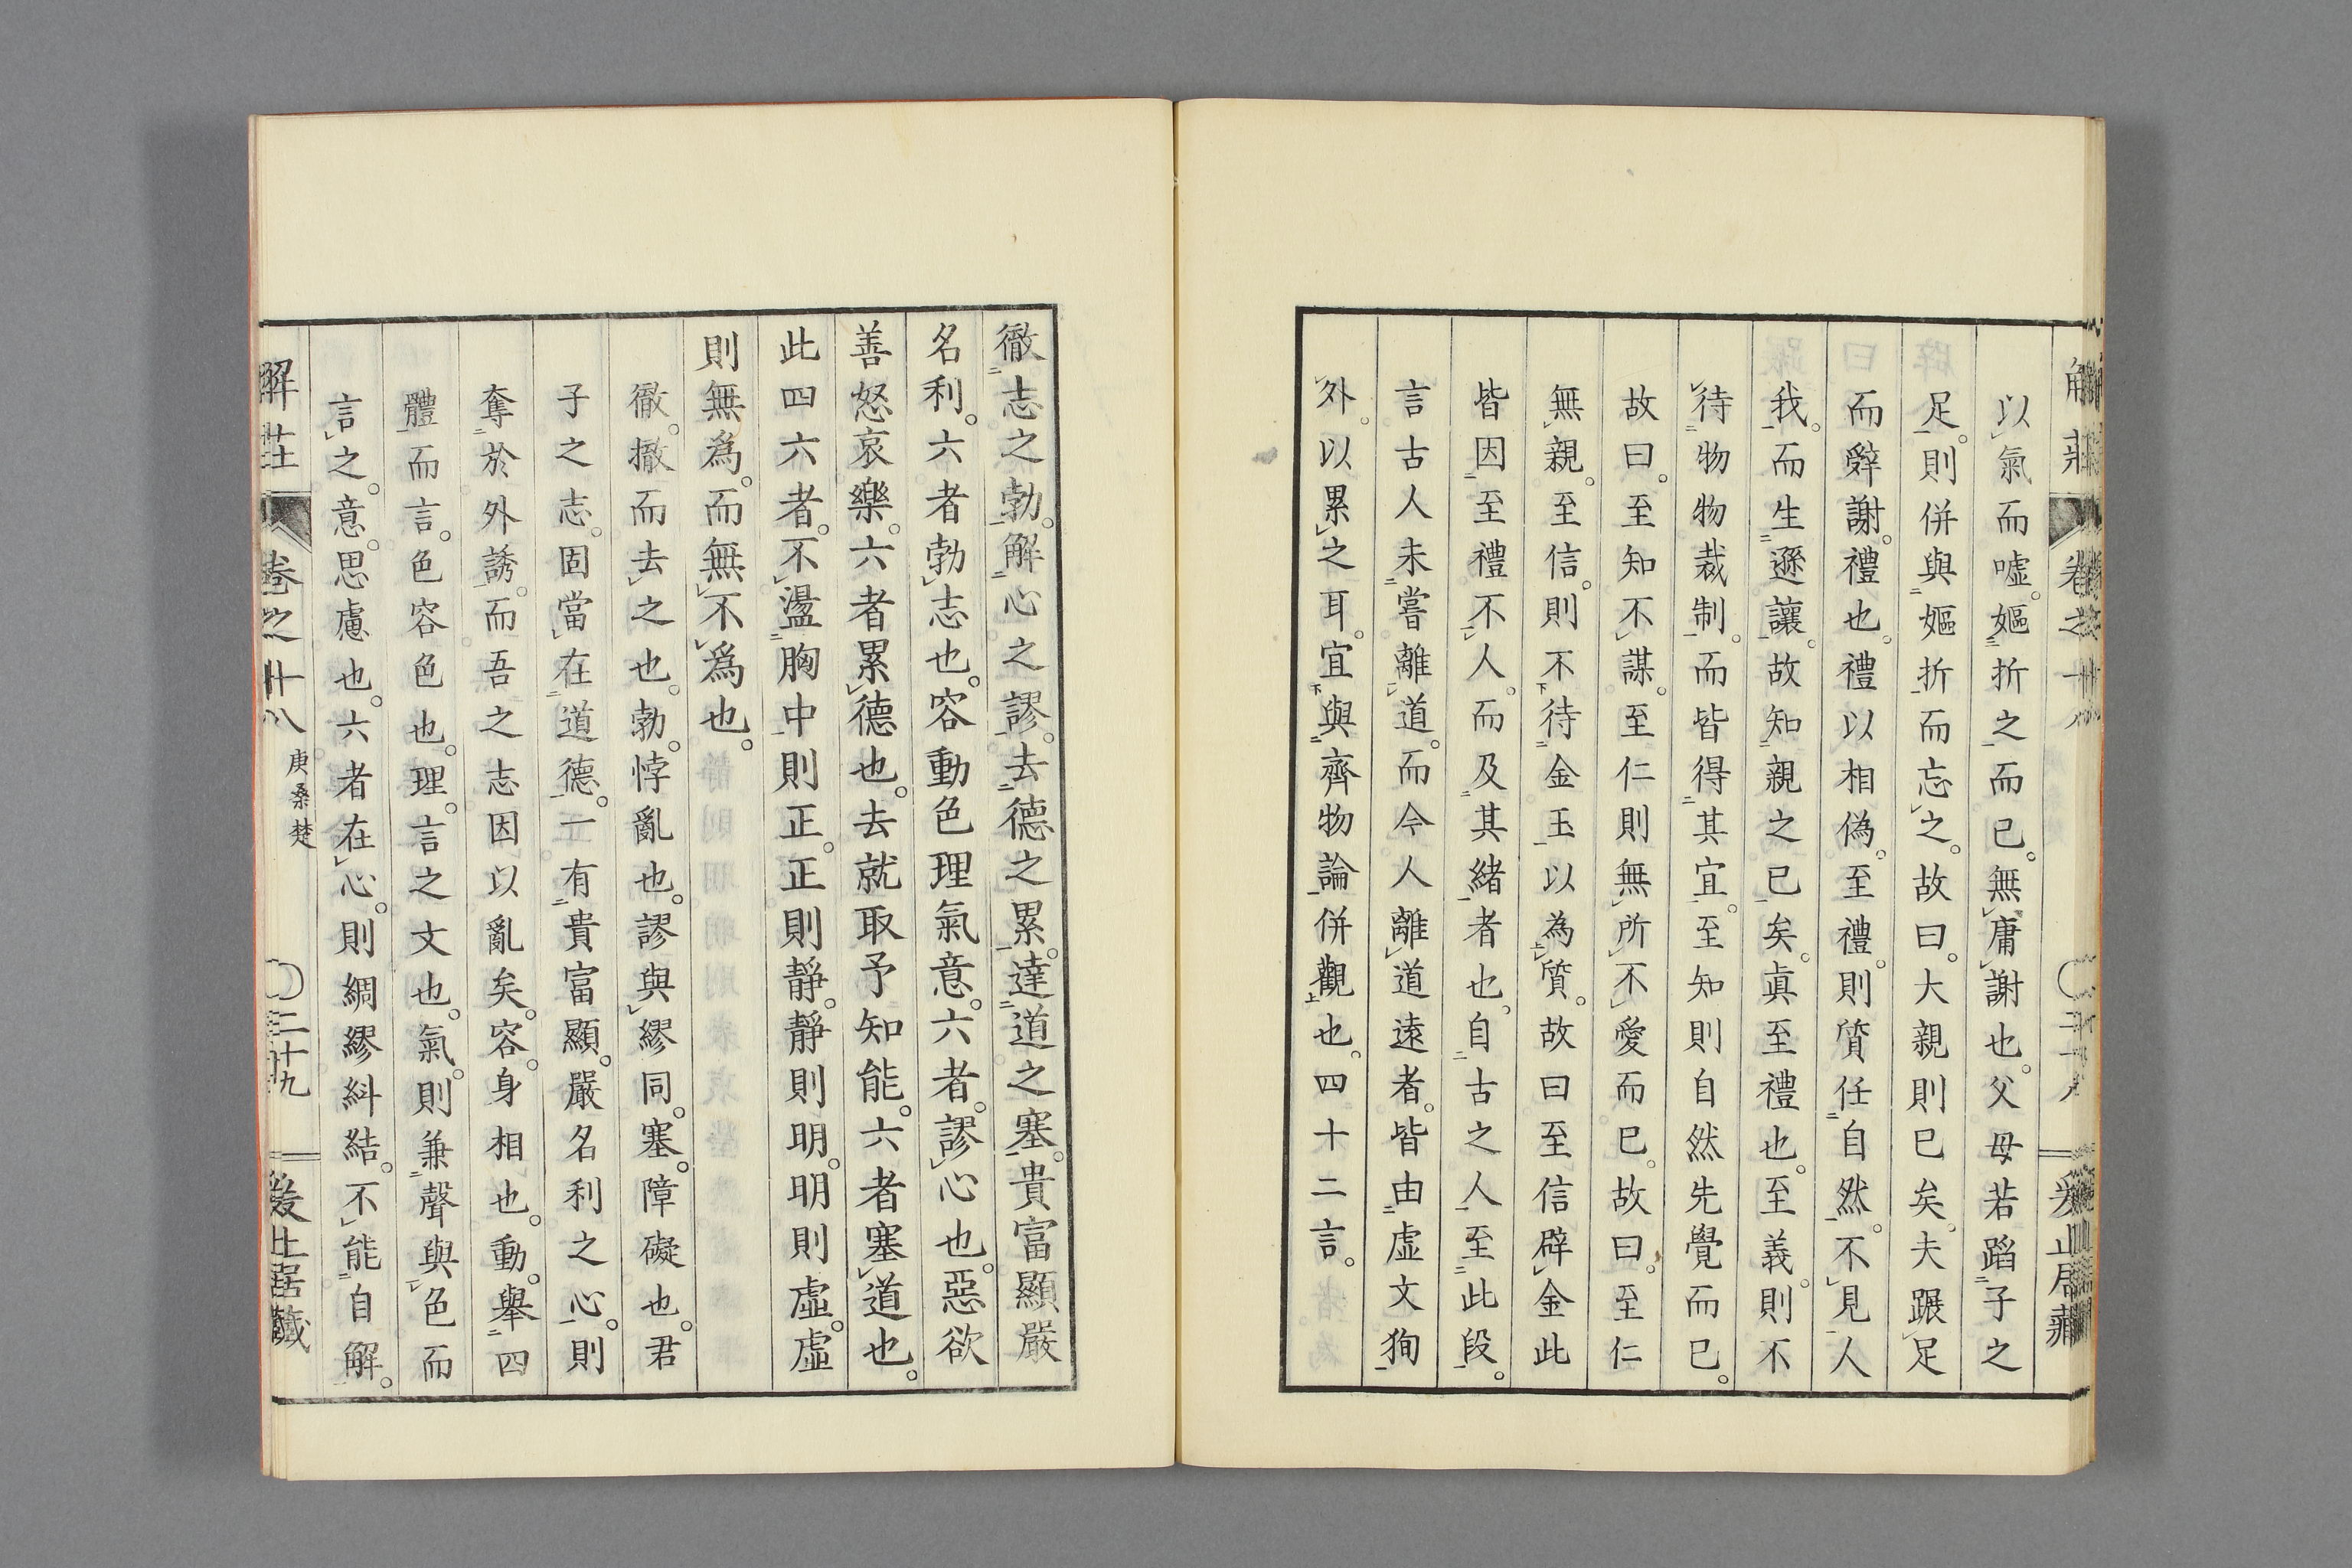 以氣而噓。嫗折之而已。無庸謝也。父母若蹈子之
足。則併與嫗折而忘之。故曰。大親則已矣。夫蹍足
而辤謝。禮也。禮以相偽。至禮。則質任自然。不見人
我。而生遜讓。故知親之已矣。眞至禮也。至義。則不
待物物裁制。而皆得其宜。至知則自然先覺而已。
故曰。至知不謀。至仁則無所不愛而已。故曰。至仁
無親。至信。則不待金玉以為質。故曰至信辟金此
皆因至禮不人。而及其緒者也。自古之人至此段。
言古人未嘗離道。而今人離道遠者。皆由虛文狥
外。以累之耳。宜與齊物論併觀也。四十二言。
徹志之勃。解心之謬。去德之累。達道之塞。貴富顯嚴
名利。六者勃志也。容動色理氣意。六者。謬心也。惡欲
善怒哀樂。六者累德也。去就取予知能。六者塞道也。
此四六者。不盪胸中則正。正則靜。靜則明。明則虛。虛
則無為。而無不為也。
徹。撤而去之也。勃。悖亂也。謬與繆同。塞。障礙也。君
子之志。固當在道德。一有貴富顯。嚴名利之心。則
奪於外誘。而吾之志因以亂矣。容。身相也。動。舉四
體而言。色容色也。理。言之文也。氣。則兼聲與色而
言之。意。思慮也。六者在心。則綢繆糾結。不能自解。
解莊 卷之十八 庚桑楚 二十九 爰止居藏